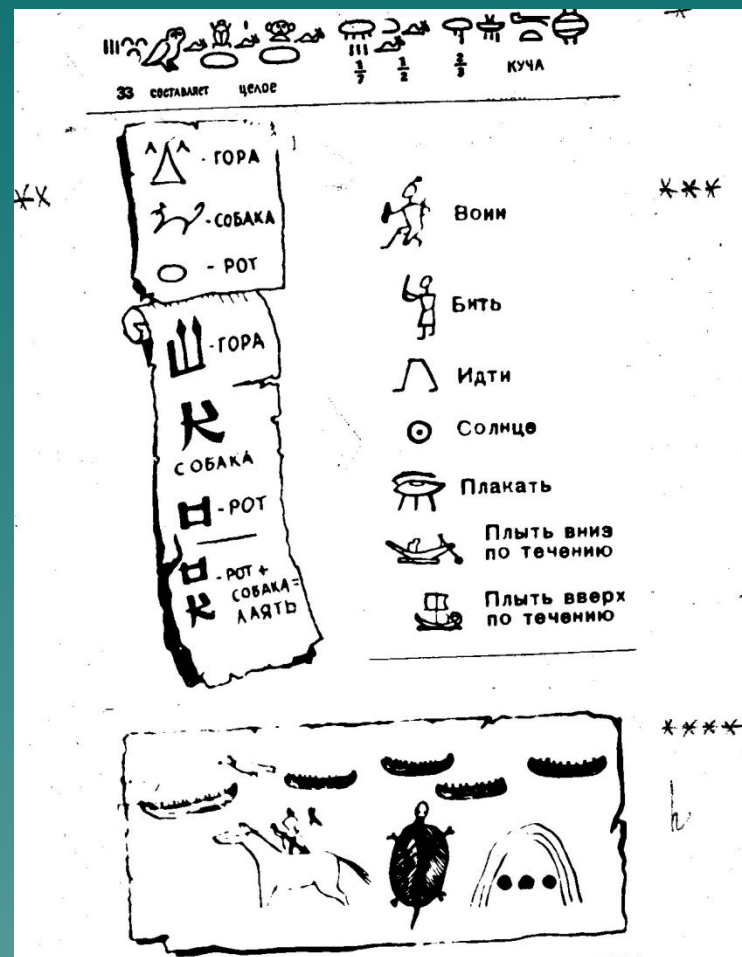 1/7 1/2 2/3 КУЧА
33 СОСТАВЛЯЕТ ЦЕЛОЕ
- ГОРА
- СОБАКА
- РОТ
- ГОРА
СОБАКА
- РОТ
- РОТ +
СОБАКА =
ЛАЯТЬ
Воин
Бить
Идти
Солнце
Плакать
Плыть вниз
по течению
Плыть вверх
по течению
**
***
****
h